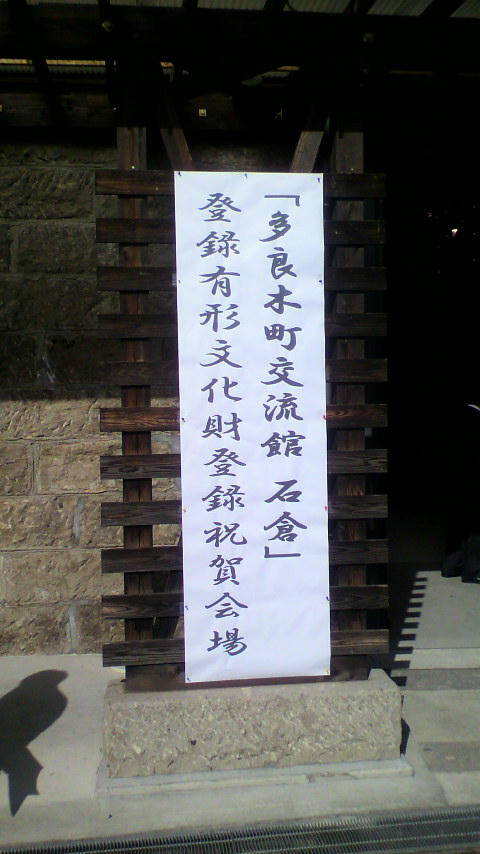 「多良木町交流館 石倉」
登録有形文化財登録祝賀会場